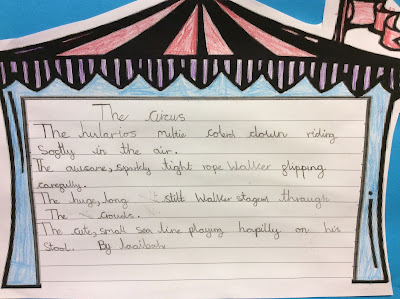 The circus
The hularios multie colerd clown riding
Softly in the air.
The awsane, sparkly tight rope Walker flipping
carefully.
The huge, long stilt Walker stagers through
The crouds.
The cute, small sea line playing happily on his
Stool. By laaibah